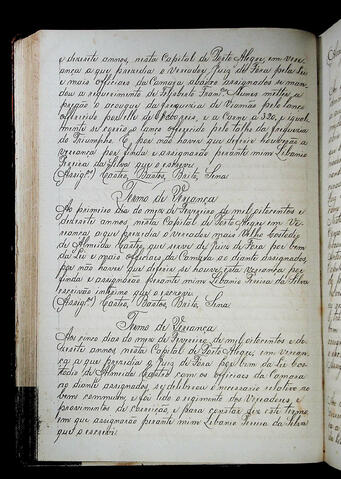 e desisete annos, nesta Capital de Porto Alegre, em vere-
ança a que presidio o Vereador Juiz de Fora pela Lei
e mais officiaes da Camara abaixo assignados se man-
dou a requerimento de Felisberto Fran.co Nunes metter a
pregão o açougue da freguezia de Viamão pelo lanço
offerecido por elle de reis, e a carne a 320, e igual-
mente se erguio o lanço offerecido pelo talho da freguezia
do Triumpho. E, por não haver que deferir houverão a
vereança por finda e assignarão perante mim Libanio
Pereira da Silva que o escrevi.
(Assig.os) Castro, Bastos, Brito, Sena
Termo de Vereança
Ao primeiro dia do mez de Fevereiro de mil oitocentos e
desisete annos nesta Capital de Porto Alegre em Ve-
reança, a que presidio o vereador mais Velho Custodio
de Almeida Castro, que serve de Juiz de Fora por bem
da Lei e mais officiaes da Camara ao diante assignados,
por não haver que deferir se houve esta vereança por
finda e assignarão perante mim Libanio Pereira da Silva
escrivão interino que o escrevi.
(Assig.os) Castro, Bastos, Brito, Sena
Termo de Vereança
Aos cinco dias do mez de Fevereiro de mil oitocentos e de-
sisete annos, nesta Capital de Porto Alegre, em verean-
ça a que presidio o Juiz de Fora por bem da Lei Cus-
todio de Almeida Castro com os officiaes da Camara
ao diante assignados, se deliberou o necessario relativo ao
bem commum, e foi lido o regimento dos Vereadores, e
provimentos de correição, e para constar fiz este termo,
em que assignarão perante mim Libanio Pereira da Silva
que o escrevi.